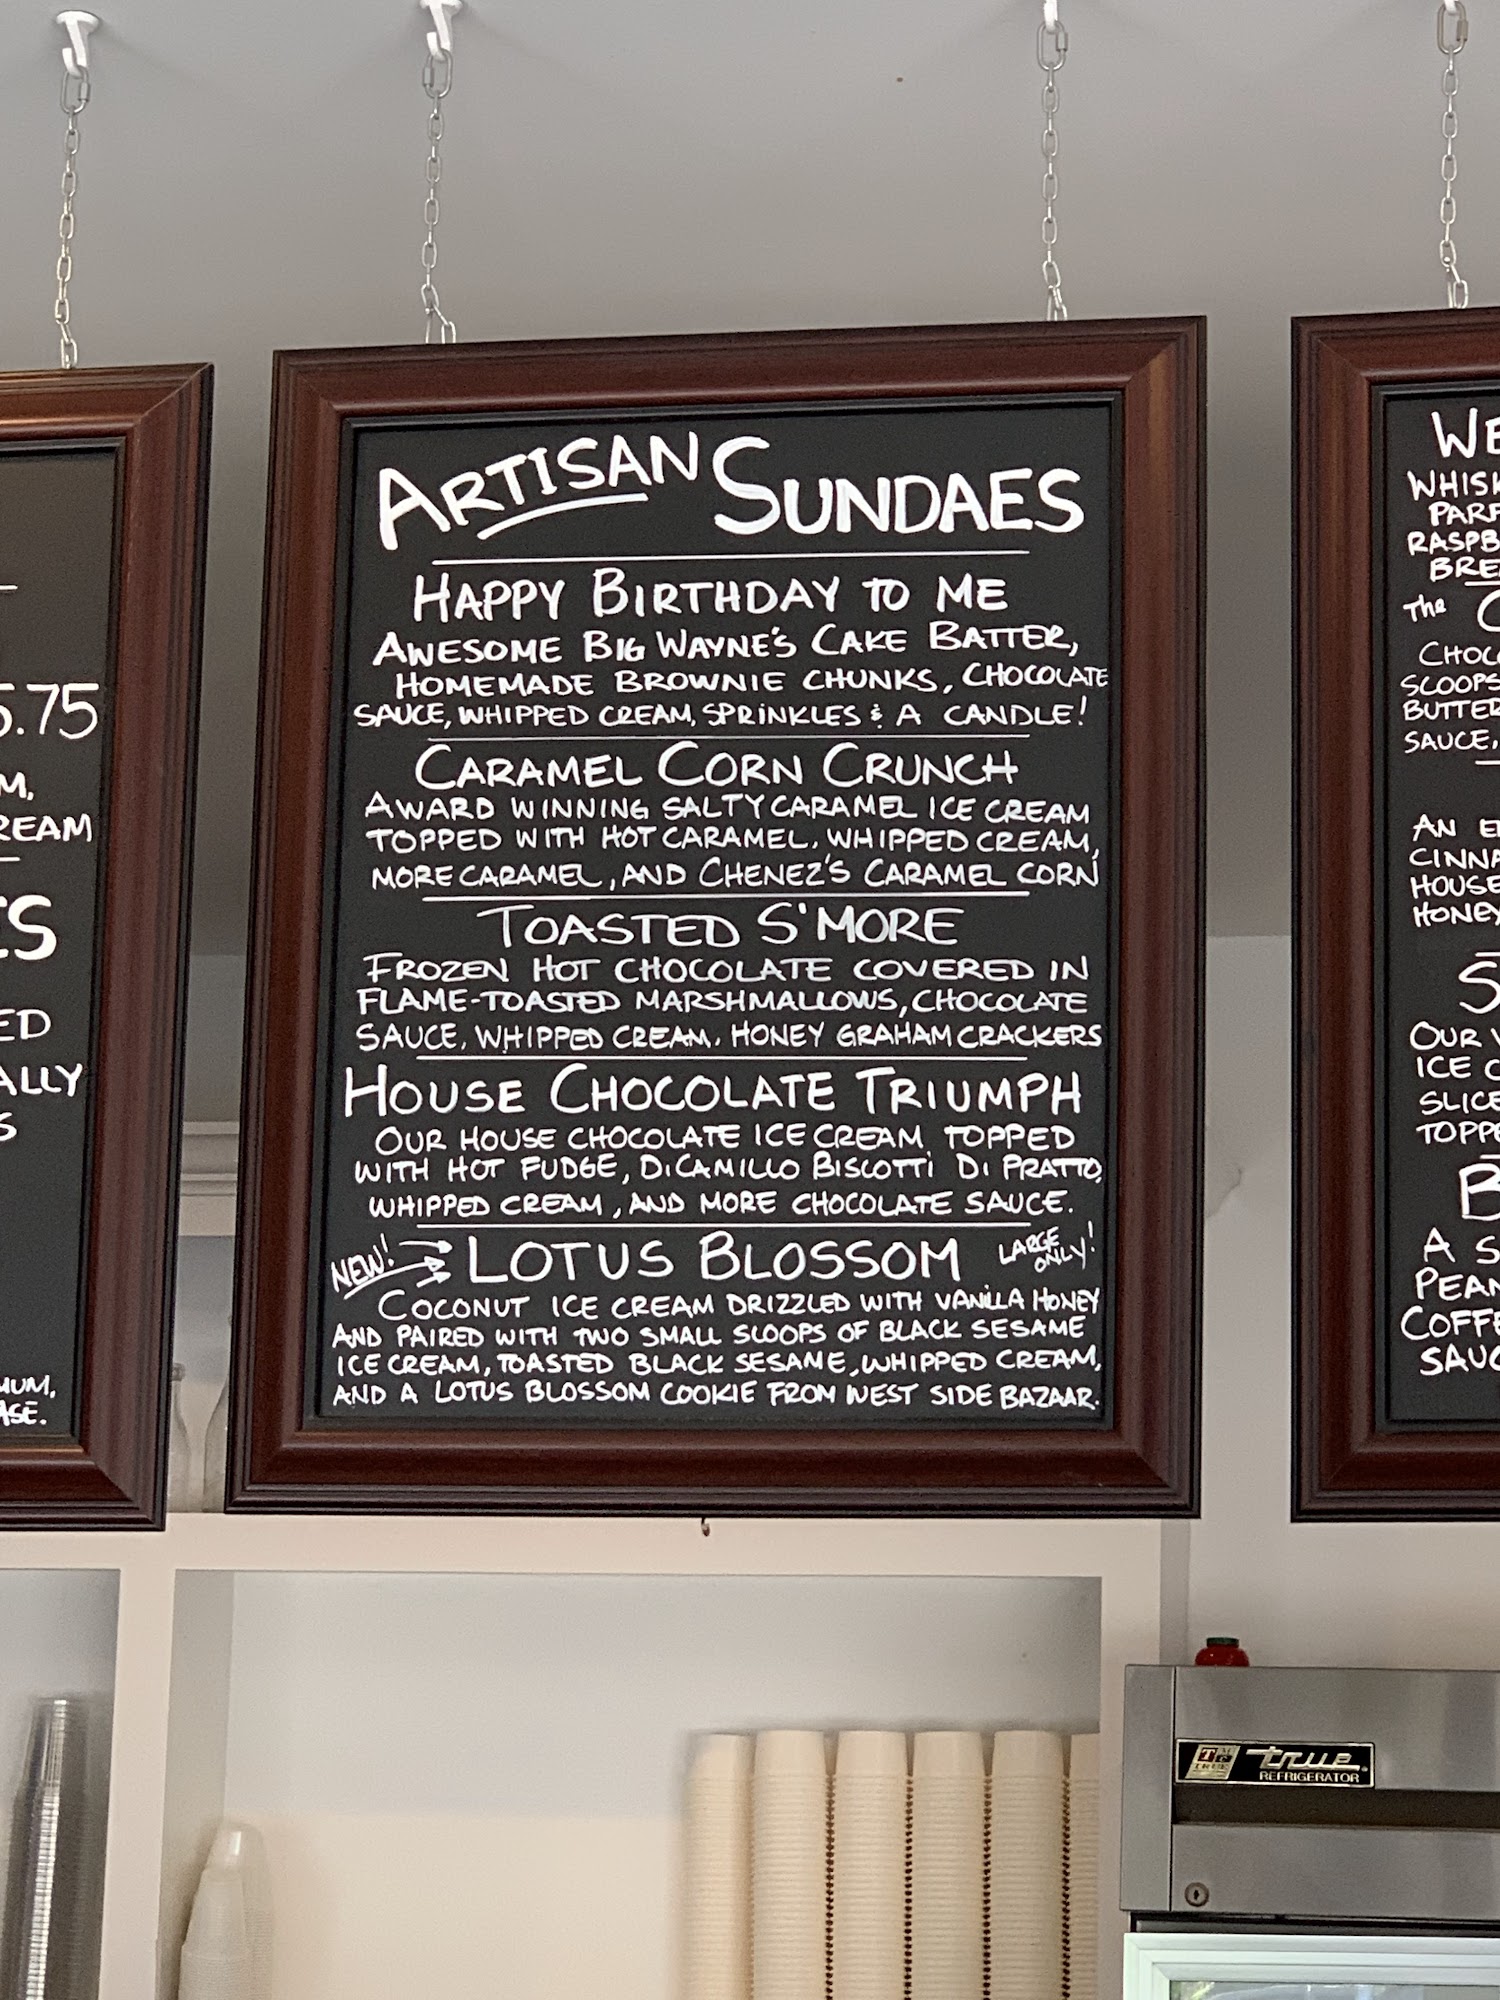 5.75
REAM
ALLY
ARTISAN SUNDAES
HAPPY BIRTHDAY TO ME
AWESOME BIG WAYNE'S CAKE BATTER,
HOMEMADE BROWNIE CHUNKS, CHOCOLATE
SAUCE, WHIPPED CREAM, SPRINKLES & A CANDLE!
CARAMEL CORN CRUNCH
AWARD WINNING SALTY CARAMEL ICE CREAM
TOPPED WITH HOT CARAMEL, WHIPPED CREAM,
MORE CARAMEL, AND CHENEZ'S CARAMEL CORN
TOASTED S'MORE
FROZEN HOT CHOCOLATE COVERED IN
FLAME-TOASTED MARSHMALLOWS, CHOCOLATE
SAUCE, WHIPPED CREAM, HONEY GRAHAM CRACKERS
HOUSE CHOCOLATE TRIUMPH
OUR HOUSE CHOCOLATE ICE CREAM TOPPED
WITH HOT FUDGE, DICAMILLO BISCOTTI DI PRATTO,
WHIPPED CREAM, AND MORE CHOCOLATE SAUCE.
NEW! LOTUS BLOSSOM LARGE ONLY!
COCONUT ICE CREAM DRIZZLED WITH VANILLA HONEY
AND PAIRED WITH TWO SMALL SCOOPS OF BLACK SESAME
ICE CREAM, TOASTED BLACK SESAME, WHIPPED CREAM,
AND A LOTUS BLOSSOM COOKIE FROM WEST SIDE BAZAAR.
WE
WHISK
PARF
RASPB
BRE
THE
CHOC
SCOOPS
BUTTER
SAUCE,
AN E
CINNA
HOUSE
HONEY
S
OUR V
ICE C
SLICE
TOPPE
B
A S
PEAN
COFFE
SAUC
true
REFRIGERATOR